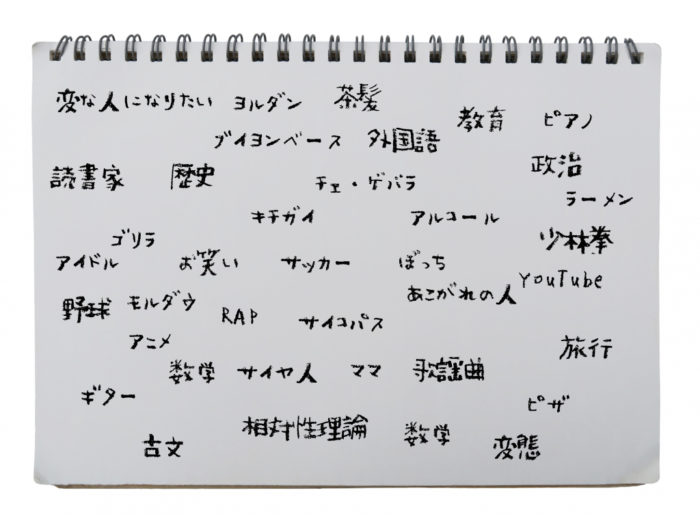 変な人になりたい ヨルダン 茶髪
教育 ピアノ
ブイヨンベース 外国語
政治
読書家 歴史 チェ・ゲバラ
ラーメン
キチガイ アルコール
ゴリラ 少林拳
アイドル お笑い サッカー ぼっち
YouTube
あこがれの人
野球 モルダウ RAP サイコパス
アニメ 旅行
数学 サイヤ人 ママ 歌謡曲
ギター ピザ
相対性理論 数学
古文 変態